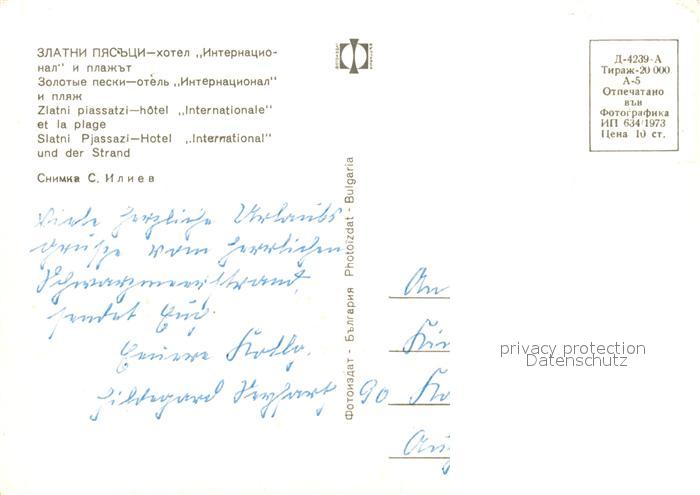 ЗЛАТНИ ПЯСЪЦИ—хотел „Интернацио-
нал" и плажът
Золотые пески—отель „Интернационал"
и пляж
Zlatni piassatzi—hôtel „Internationale"
et la plage
Slatni Pjassazi—Hotel „International"
und der Strand
Снимка С. Илиев
Viele herzliche Urlaubs
grüße vom herrlichen
Schwarzmeerstrand,
sendet Euch
Hildegard
Фотоиздат - България Photoizdat - Bulgaria
Д-4239-А
Тираж-20 000
А-5
Отпечатано
във
Фотографика
ИП 634/1973
Цена 10 ст.
An
privacy protection
Datenschutz
90